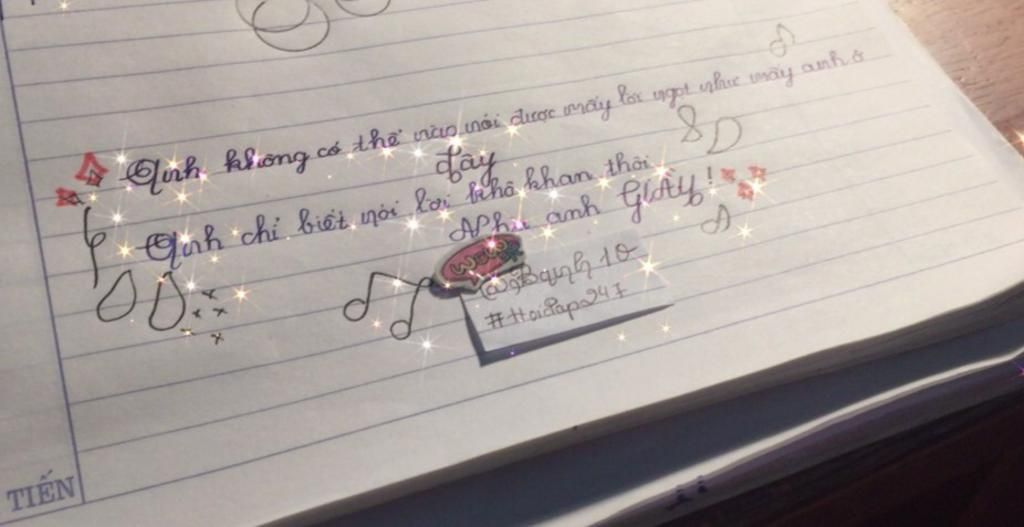 Anh không có thể nào nói được mấy lời ngọt như mấy anh ở
đây
Anh chỉ biết nói lời khô khan thôi
Như anh Giây!
WOW
#HoiPapo247
TIẾN